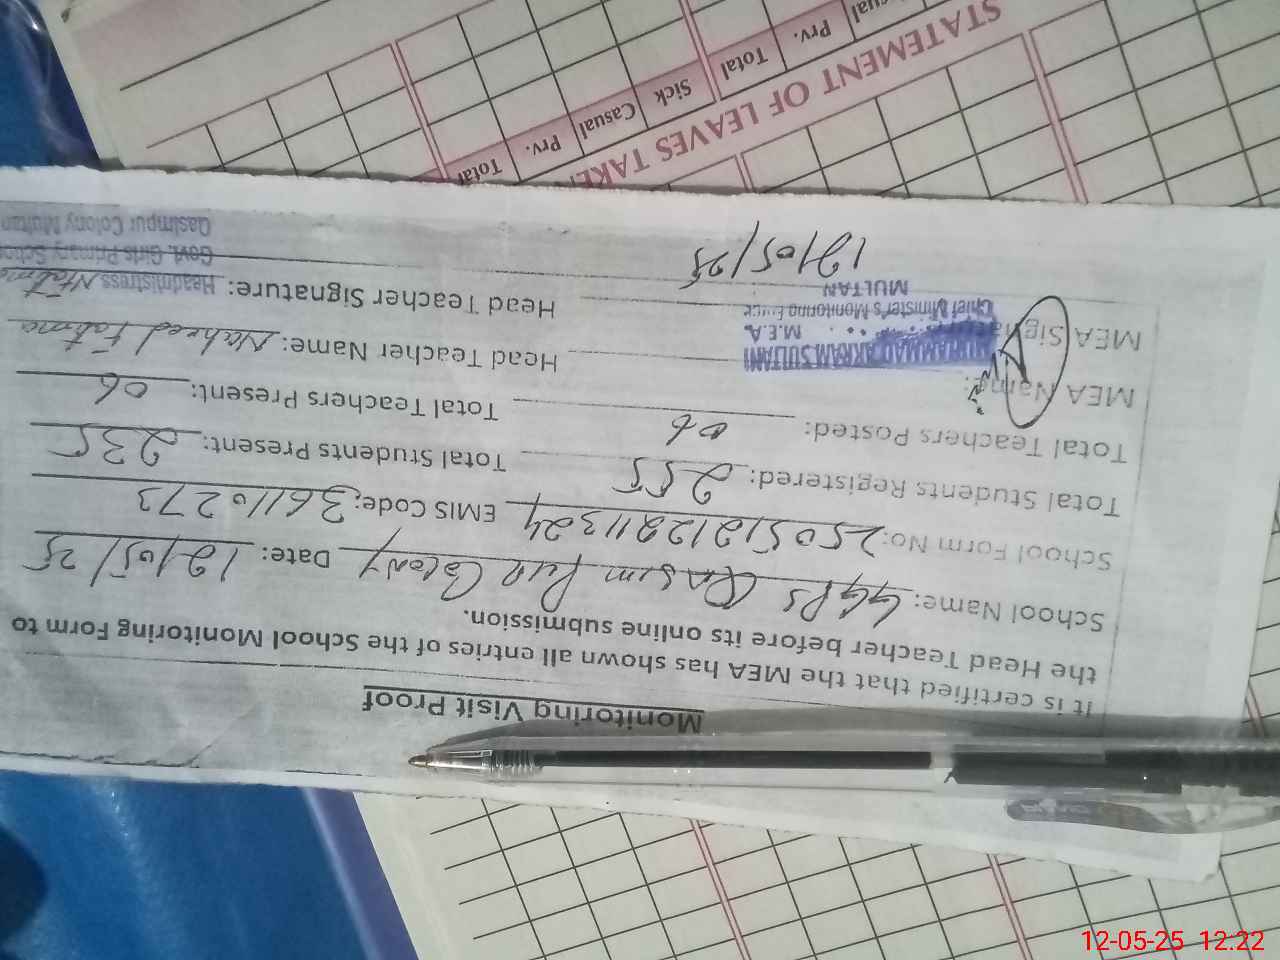 Monitoring Visit Proof
It is certified that the MEA has shown all entries of the School Monitoring Form to
the Head Teacher before its online submission.
School Name: GGPS Qasim Pur Colony Date: 12/05/25
School Form No: 2505121221324 EMIS Code: 36110273
Total Students Registered: 255 Total Students Present: 235
Total Teachers Posted: 06 Total Teachers Present: 06
MEA Name: MUHAMMAD AKRAM SULTANI Head Teacher Name: Naheed Fatma
M.E.A.
MEA Signature: Head Teacher Signature: Headmistress
Chief Minister's Monitoring Force
MULTAN
Govt. Girls Primary School
Qasimpur Colony Multan
12/05/25
STATEMENT OF LEAVES TAKEN
Total Prv. Casual Sick Total Prv.
12-05-25 12:22